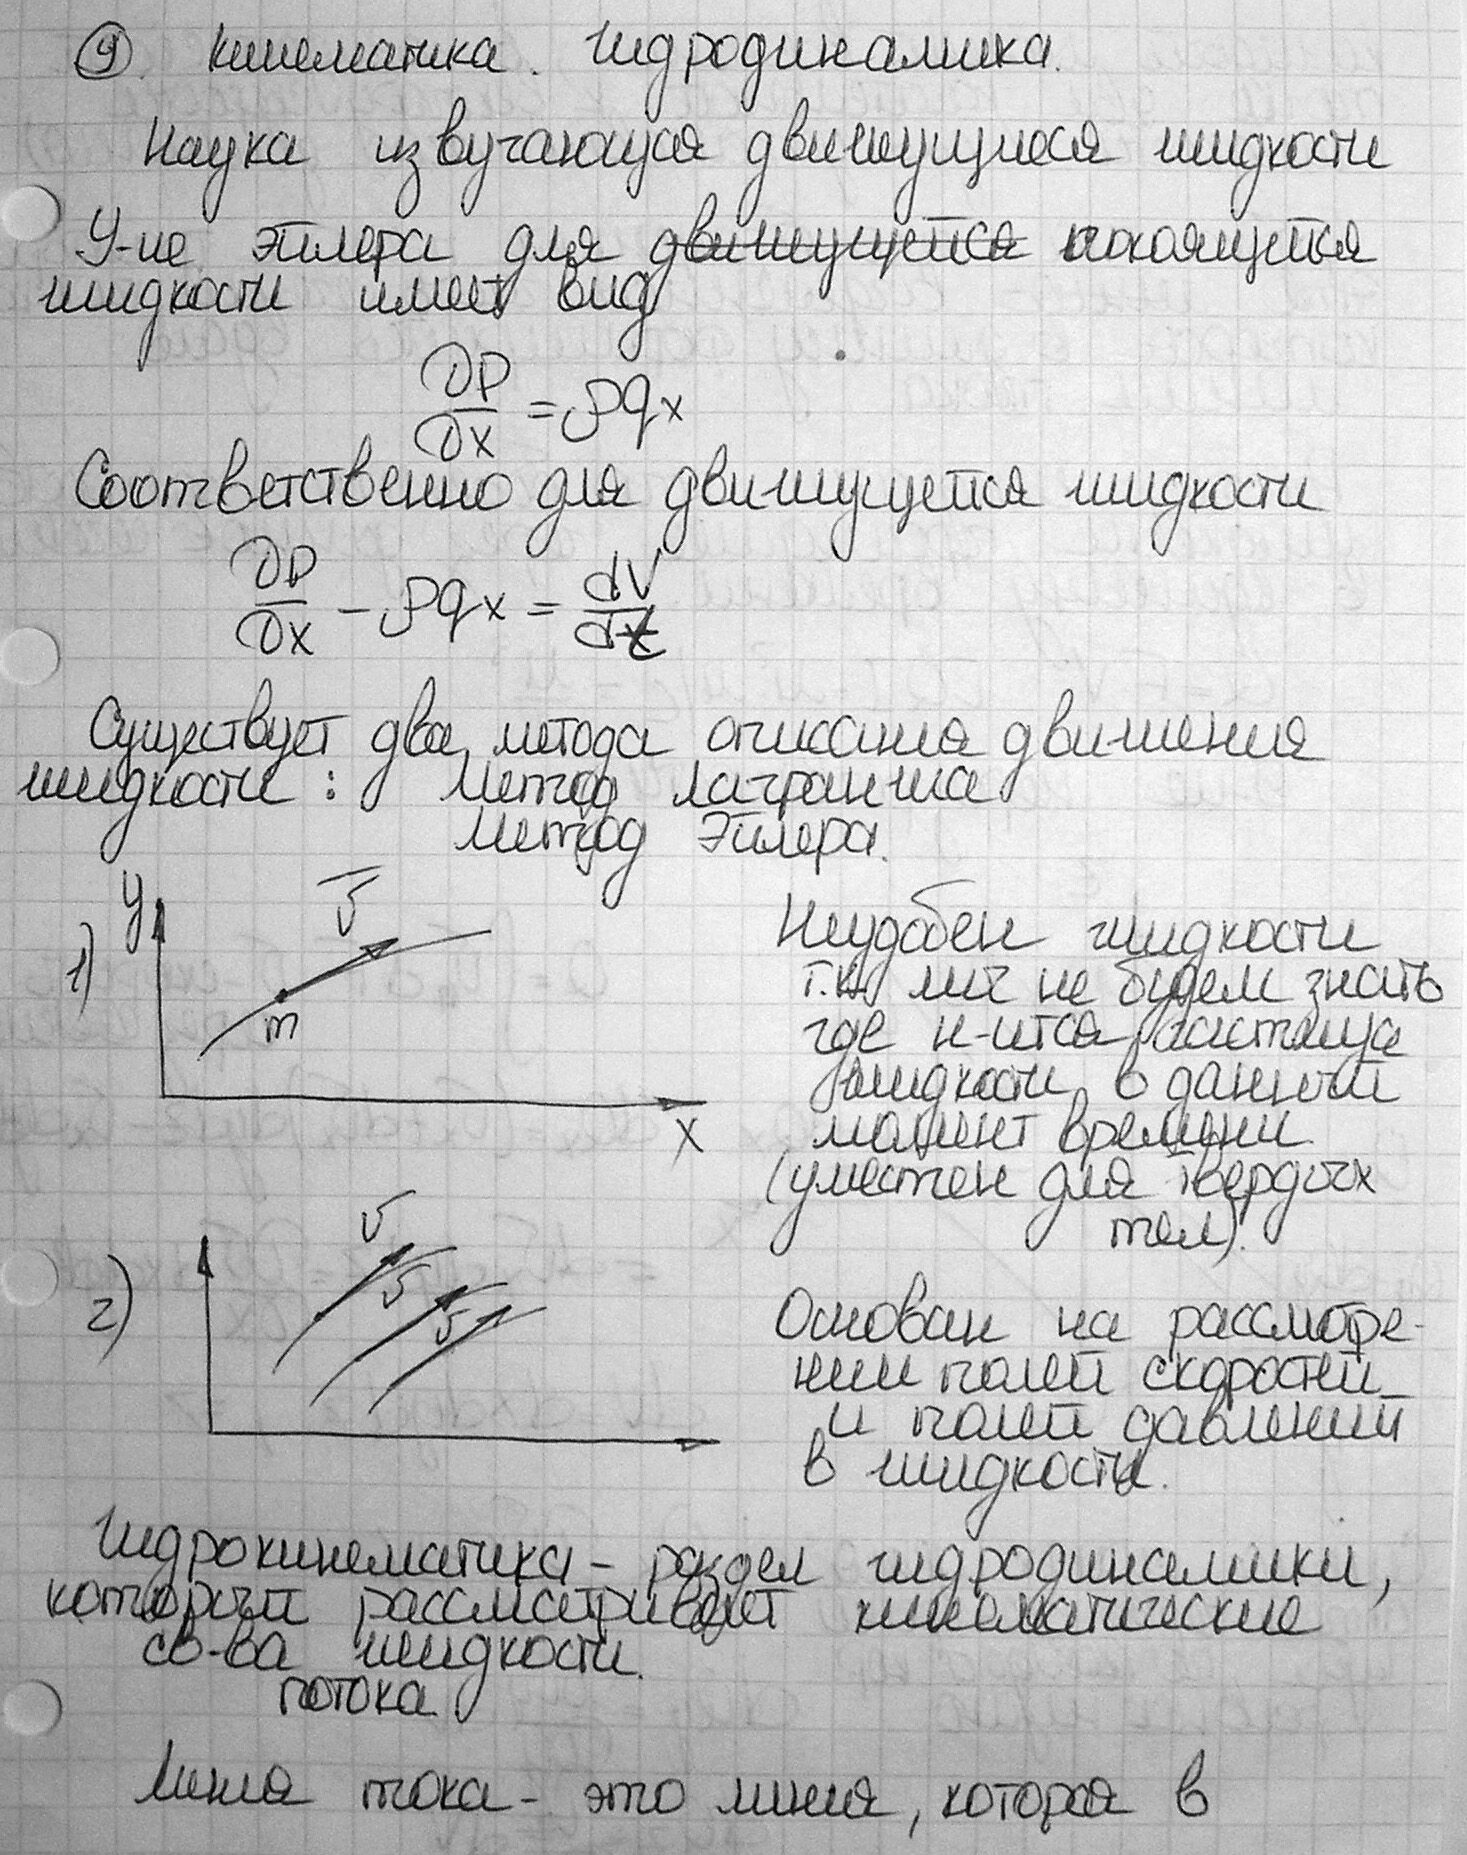 9. Кинематика. Гидродинамика.
Наука извучающуя движущуюся жидкости
У-ие Эйлера для движущуейся покоящейся
жидкости имеет вид
∂P/∂x = ρqx
Соответственно для движущейся жидкости
∂P/∂x - ρqx = dV/dt
Существует два метода описания движения
жидкости: Метод Лагранжа
Метод Эйлера.
1) y v̄ m x
Неудобен жидкости
т.к. мы не будем знать
где н-ится частица
жидкости в данный
момент времени
(уместен для твердых
тел).
2) v v v
Основан на рассмотре-
нии полей скоростей
и полей давлений
в жидкости.
Гидрокинематика - раздел гидродинамики,
который рассматривает кинематические
св-ва жидкости.
потока
Линия тока - это линия, которая в